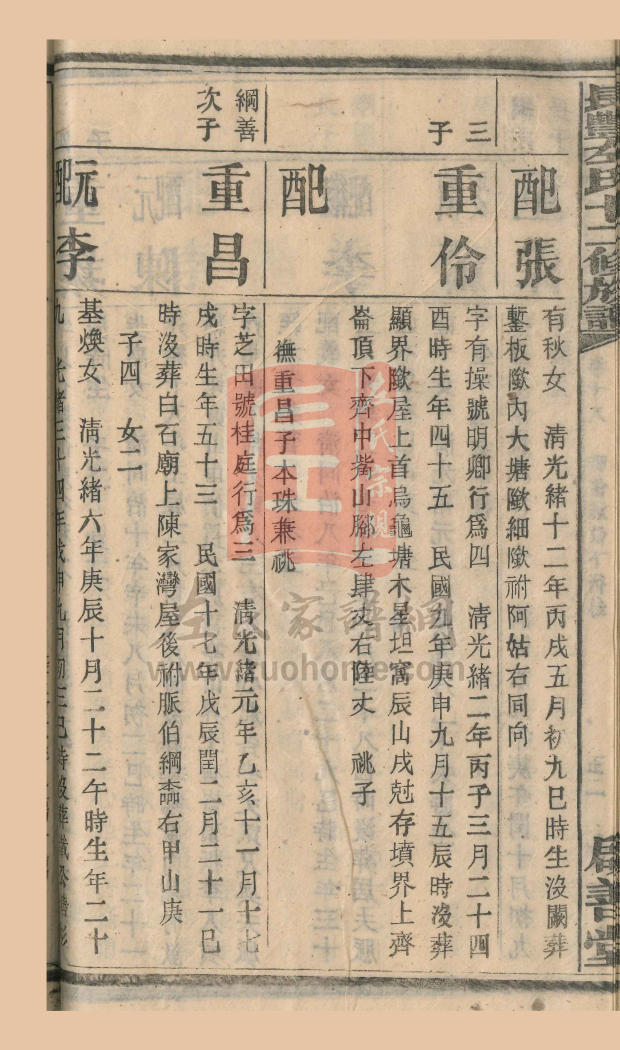 長豐左氏十二修族譜
啟善堂
配張
有秋女 清光緒十二年丙戌五月初九巳時生沒闕葬
鏨板隞內大塘隞細隞祔阿姑右同向
三
子
重伶
字有操號明卿行爲四 清光緒二年丙子三月二十四
酉時生年四十五 民國九年庚申九月十五辰時沒葬
顯界隞屋上首烏龜塘木星坦窩辰山戌兙存墳界上齊
崙頂下齊中觜山腳左肆丈右陸丈 祧子
配
撫重昌子本珠兼祧
綱善
次子
重昌
字芝田號桂庭行爲三 清光緒元年乙亥十一月十七
戌時生年五十三 民國十七年戊辰閏二月二十一巳
時沒葬白石廟上陳家灣屋後祔脈伯綱崙右甲山庚
子四 女二
配李
基煥女 清光緒六年庚辰十月二十二午時生年二十
九 光緒三十四年戊申九月初三巳時沒葬
左氏宗親
全民家譜網
www.zuohome.com